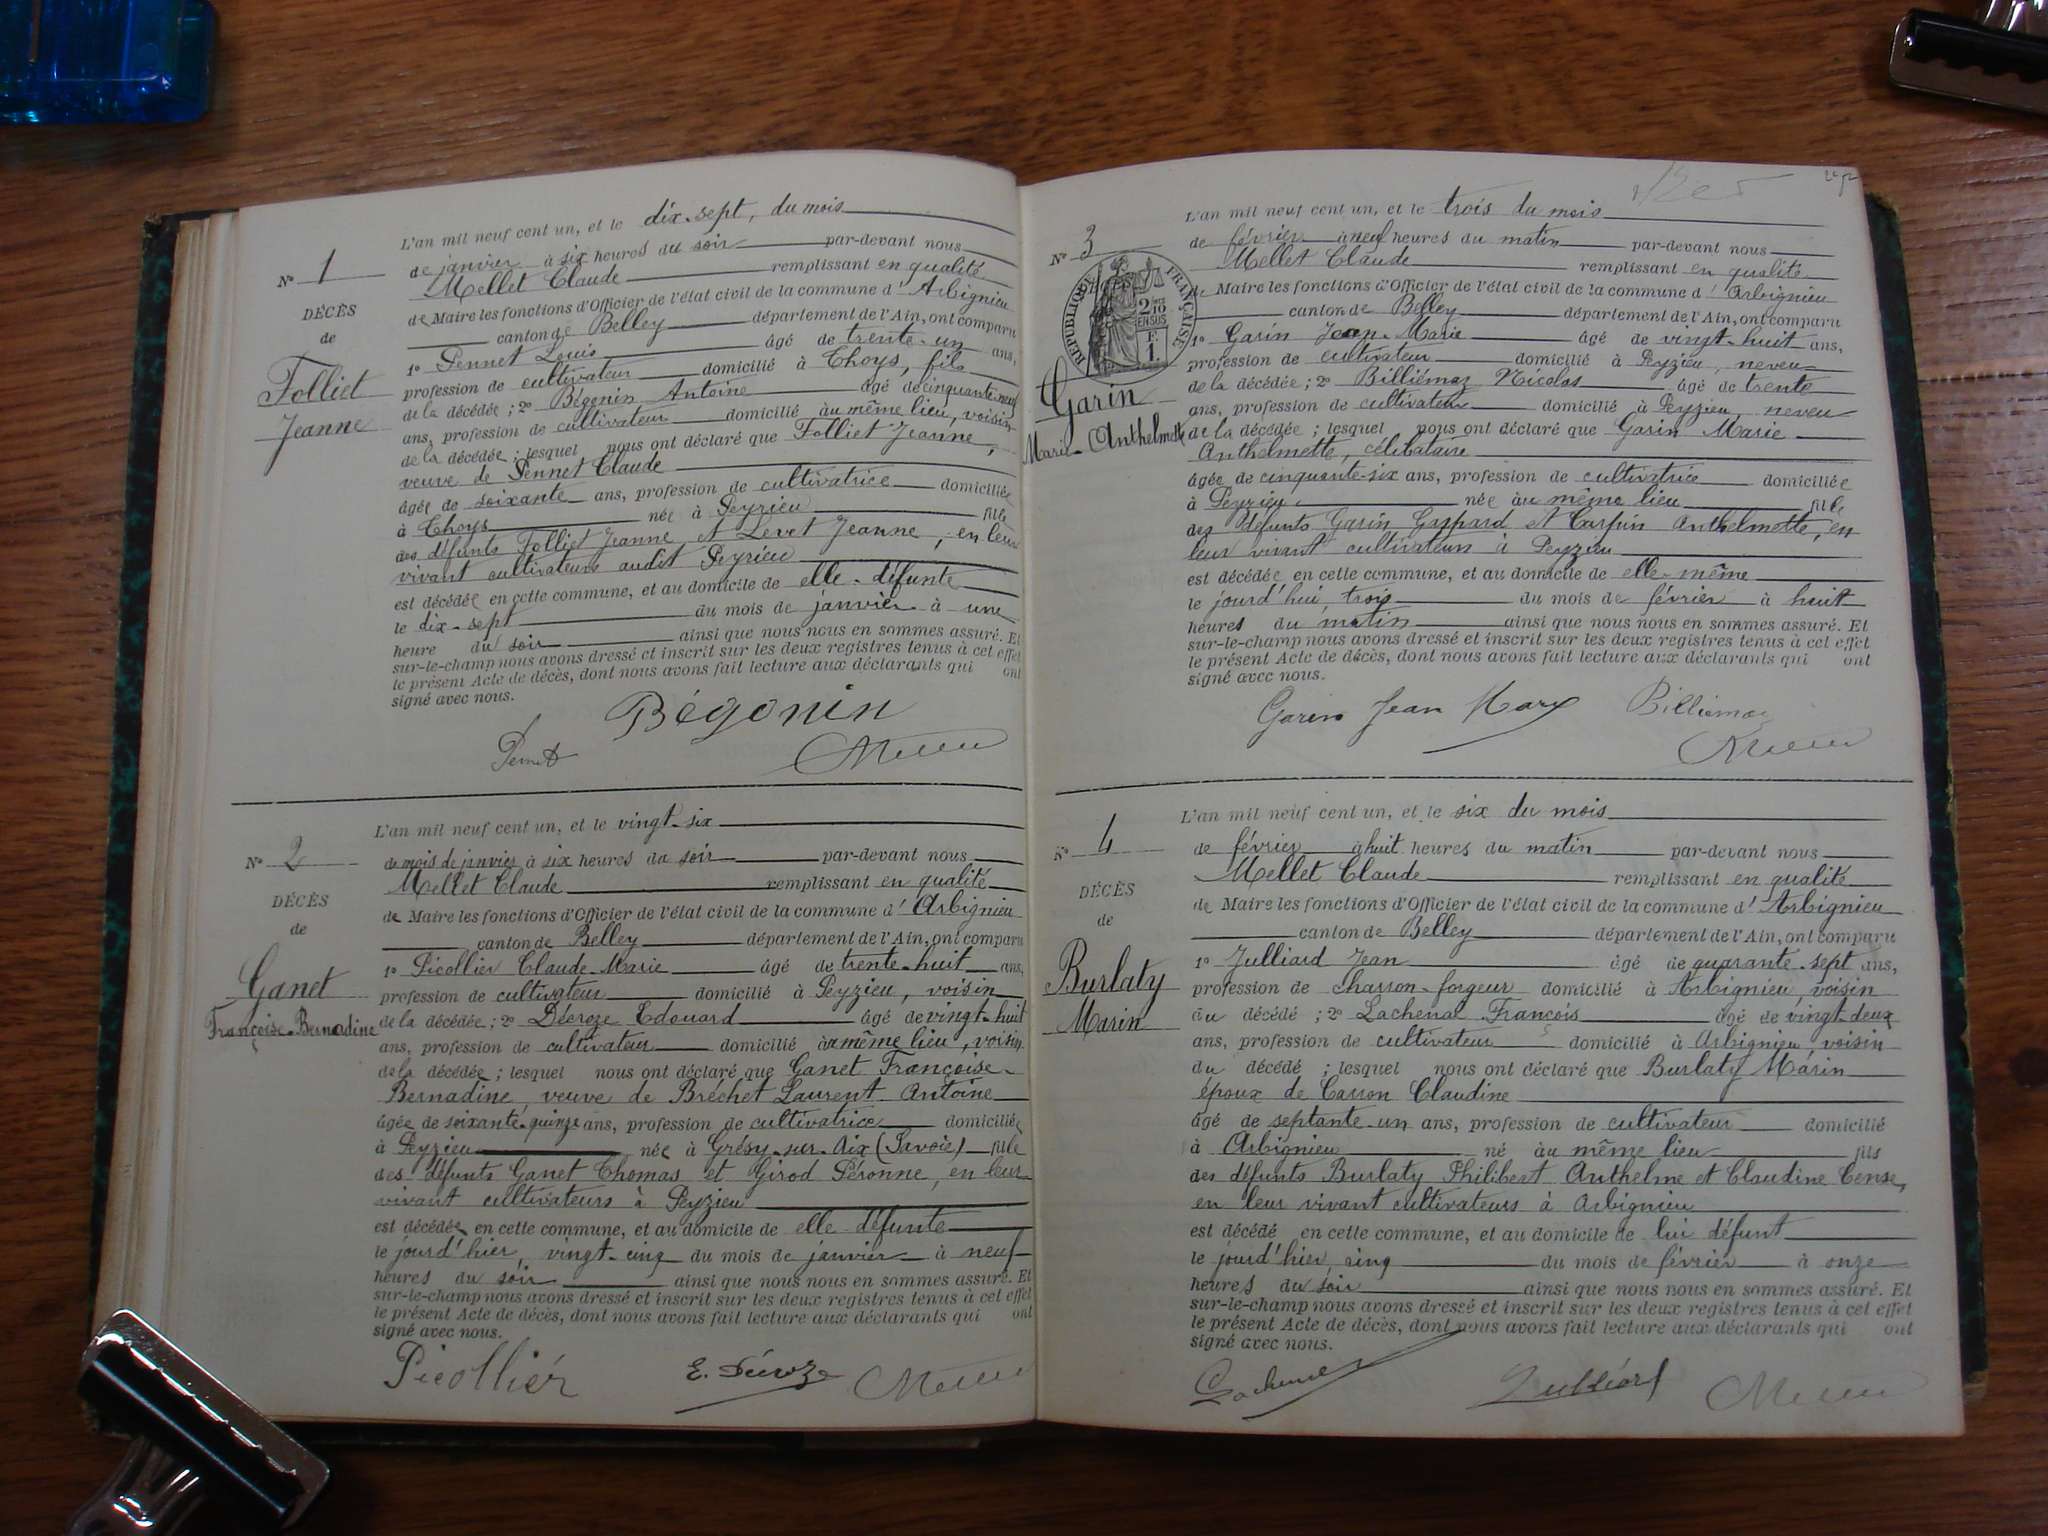 L'an mil neuf cent un, et le dix-sept, du mois
N° 1
de janvier à six heures du soir par-devant nous
Mellet Claude remplissant en qualité
DÉCÈS
de Maire les fonctions d'Officier de l'état civil de la commune d'Arbignieu
de
canton de Belley département de l'Ain, ont comparu
1° Pennet Louis âgé de trente-un ans,
Folliet
profession de cultivateur domicilié à Thoys, fils
de la décédée ; 2° Bégonin Antoine âgé de cinquante-neuf
Jeanne
ans, profession de cultivateur domicilié au même lieu, voisin
de la décédée ; lesquel nous ont déclaré que Folliet Jeanne,
veuve de Pennet Claude
âgée de soixante ans, profession de cultivatrice domiciliée
à Thoys née à Peyrieu fille
des défunts Folliet Jeanne et Levet Jeanne, en leur
vivant cultivateurs audit Peyrieu
est décédée en cette commune, et au domicile de elle-défunte
le dix-sept du mois de janvier à une
heure du soir ainsi que nous nous en sommes assuré. Et
sur-le-champ nous avons dressé et inscrit sur les deux registres tenus à cet effet
le présent Acte de décès, dont nous avons fait lecture aux déclarants qui ont
signé avec nous.
Bégonin
Pennet
L'an mil neuf cent un, et le vingt-six
N° 2
du mois de janvier à six heures du soir par-devant nous
Mellet Claude remplissant en qualité
DÉCÈS
de Maire les fonctions d'Officier de l'état civil de la commune d'Arbignieu
de
canton de Belley département de l'Ain, ont comparu
1° Picollier Claude-Marie âgé de trente-huit ans,
Ganet
profession de cultivateur domicilié à Peyzieu, voisin
Françoise-Bernadine
de la décédée ; 2° Décroze Edouard âgé de vingt-huit
ans, profession de cultivateur domicilié au même lieu, voisin
de la décédée ; lesquel nous ont déclaré que Ganet Françoise-
Bernadine, veuve de Bréchet Laurent Antoine
âgée de soixante-quinze ans, profession de cultivatrice domiciliée
à Peyzieu née à Grésy-sur-Aix (Savoie) fille
des défunts Ganet Thomas et Girod Péronne, en leur
vivant cultivateurs à Peyzieu
est décédée en cette commune, et au domicile de elle défunte
le jourd'hier, vingt-cinq du mois de janvier à neuf
heures du soir ainsi que nous nous en sommes assuré. Et
sur-le-champ nous avons dressé et inscrit sur les deux registres tenus à cet effet
le présent Acte de décès, dont nous avons fait lecture aux déclarants qui ont
signé avec nous.
Picollier E. Décroze
L'an mil neuf cent un, et le trois du mois
N° 3
de février à neuf heures du matin par-devant nous
Mellet Claude remplissant en qualité
RÉPUBLIQUE FRANÇAISE
2/10 EN SUS
F. 1.
de Maire les fonctions d'Officier de l'état civil de la commune d'Arbignieu
canton de Belley département de l'Ain, ont comparu
1° Garin Jean-Marie âgé de vingt-huit ans,
profession de cultivateur domicilié à Peyzieu, neveu
Garin
de la décédée ; 2° Billiémaz Nicolas âgé de trente
ans, profession de cultivateur domicilié à Peyzieu, neveu
Marie-Anthelmette
de la décédée ; lesquel nous ont déclaré que Garin Marie
Anthelmette, célibataire
âgée de cinquante-six ans, profession de cultivatrice domiciliée
à Peyzieu née au même lieu fille
des défunts Garin Gaspard et Carpin Anthelmette, en
leur vivant cultivateurs à Peyzieu
est décédée en cette commune, et au domicile de elle-même
le jourd'hui, trois du mois de février à huit
heures du matin ainsi que nous nous en sommes assuré. Et
sur-le-champ nous avons dressé et inscrit sur les deux registres tenus à cet effet
le présent Acte de décès, dont nous avons fait lecture aux déclarants qui ont
signé avec nous.
Garin Jean Mary Billiemaz
L'an mil neuf cent un, et le six du mois
N° 4
de février à huit heures du matin par-devant nous
Mellet Claude remplissant en qualité
DÉCÈS
de Maire les fonctions d'Officier de l'état civil de la commune d'Arbignieu
de
canton de Belley département de l'Ain, ont comparu
1° Julliard Jean âgé de quarante-sept ans,
Burlaty
profession de charron-forgeur domicilié à Arbignieu, voisin
Marin
du décédé ; 2° Lachenal François âgé de vingt-deux
ans, profession de cultivateur domicilié à Arbignieu, voisin
du décédé ; lesquel nous ont déclaré que Burlaty Marin
époux de Carron Claudine
âgé de septante-un ans, profession de cultivateur domicilié
à Arbignieu né au même lieu fils
des défunts Burlaty Philibert Anthelme et Claudine Tense,
en leur vivant cultivateurs à Arbignieu
est décédé en cette commune, et au domicile de lui défunt
le jourd'hier, cinq du mois de février à onze
heures du soir ainsi que nous nous en sommes assuré. Et
sur-le-champ nous avons dressé et inscrit sur les deux registres tenus à cet effet
le présent Acte de décès, dont nous avons fait lecture aux déclarants qui ont
signé avec nous.
Lachenal Julliard